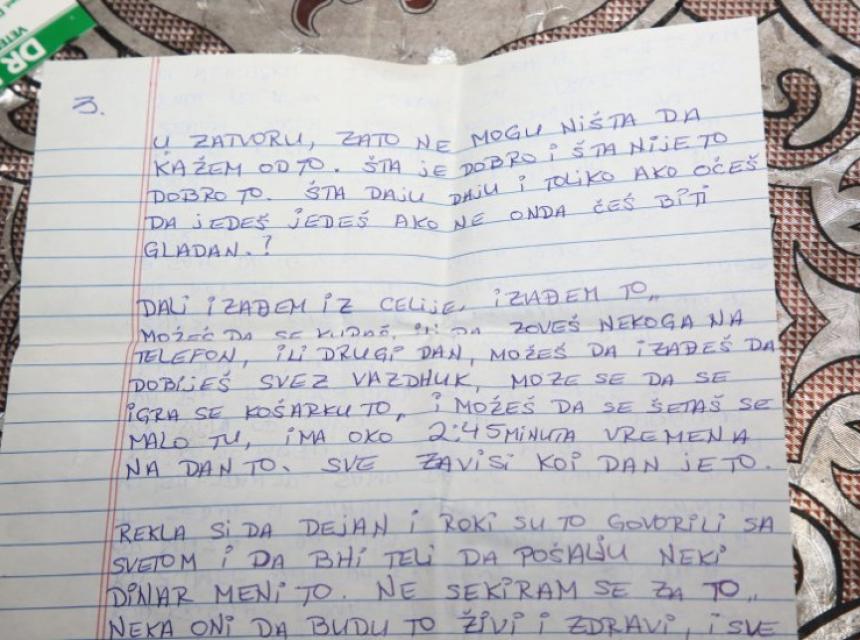 DR
VETE
3.
U ZATVORU, ZATO NE MOGU NIŠTA DA
KAŽEM OD TO. ŠTA JE DOBRO I ŠTA NIJE TO
DOBRO TO. ŠTA DAJU DAJU I TOLIKO AKO OČEŠ
DA JEDEŠ JEDEŠ AKO NE ONDA ČEŠ BITI
GLADAN.?
DALI IZAĐEM IZ CELIJE, IZAĐEM TO,,
MOŽEŠ DA SE KUPAŠ, ILI DA ZOVEŠ NEKOGA NA
TELEFON, ILI DRUGI DAN, MOŽEŠ DA IZAĐEŠ DA
DOBIJEŠ SVEZ VAZDHUK, MOZE SE DA SE
IGRA SE KOŠARKU TO, I MOŽEŠ DA SE ŠETAŠ SE
MALO TU, IMA OKO 2:45 MINUTA VREMENA
NA DAN TO. SVE ZAVISI KOI DAN JE TO.
REKLA SI DA DEJAN I ROKI SU TO GOVORILI SA
SVETOM I DA BHI TELI DA POŠALJU NEKI
DINAR MENI TO. NE SEKIRAM SE ZA TO,,
NEKA ONI DA BUDU TO ŽIVI I ZDRAVI, I SVE